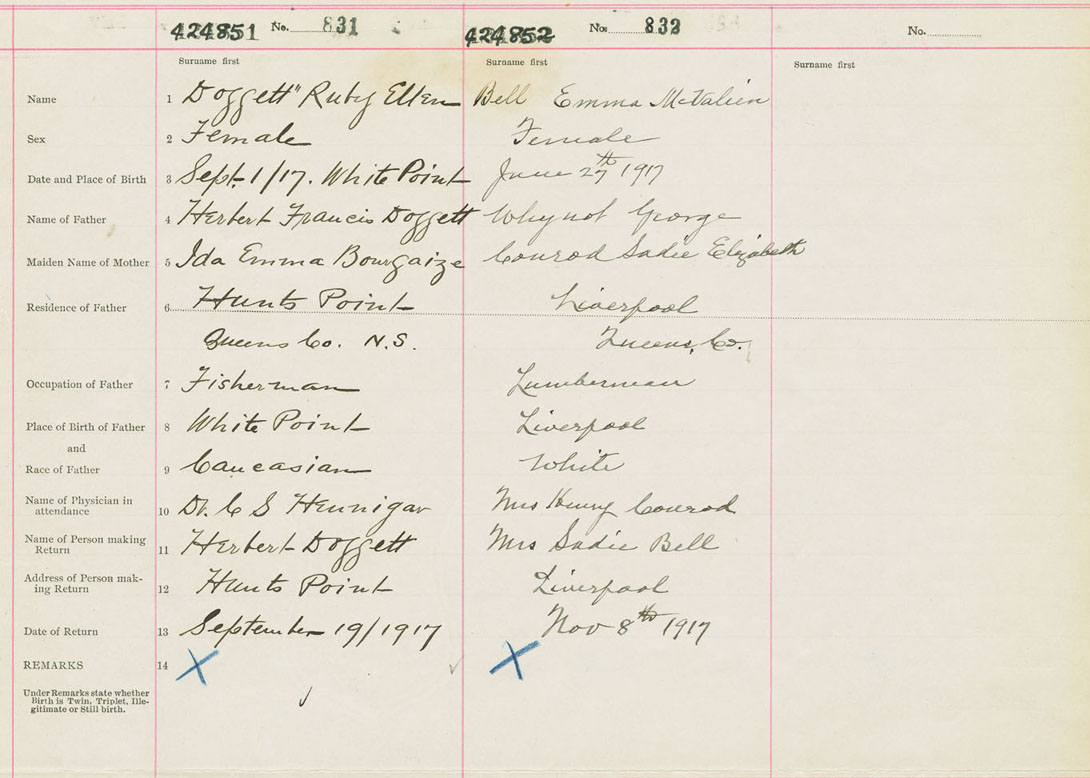 424851 No. 831 424852 No. 832 No.
Surname first Surname first Surname first
Name 1 Doggett" Ruby Ellen Bell Emma
Sex 2 Female Female
Date and Place of Birth 3 Sept. 1/17. White Point June 27th 1917
Name of Father 4 Herbert Francis Doggett Whynot George
Maiden Name of Mother 5 Ida Emma Bourgaize Conrod Sadie Elizabeth
Residence of Father 6 Hunts Point Liverpool
Queens Co. N.S. Queens, Co.
Occupation of Father 7 Fisherman Lumberman
Place of Birth of Father 8 White Point Liverpool
and
Race of Father 9 Caucasian White
Name of Physician in
attendance 10 Dr. C S Hennigar Mrs Henry Conrod
Name of Person making
Return 11 Herbert Doggett Mrs Sadie Bell
Address of Person mak-
ing Return 12 Hunts Point Liverpool
Date of Return 13 September 19/1917 Nov 8th 1917
REMARKS 14 X X
Under Remarks state whether
Birth is Twin, Triplet, Ille-
gitimate or Still birth.